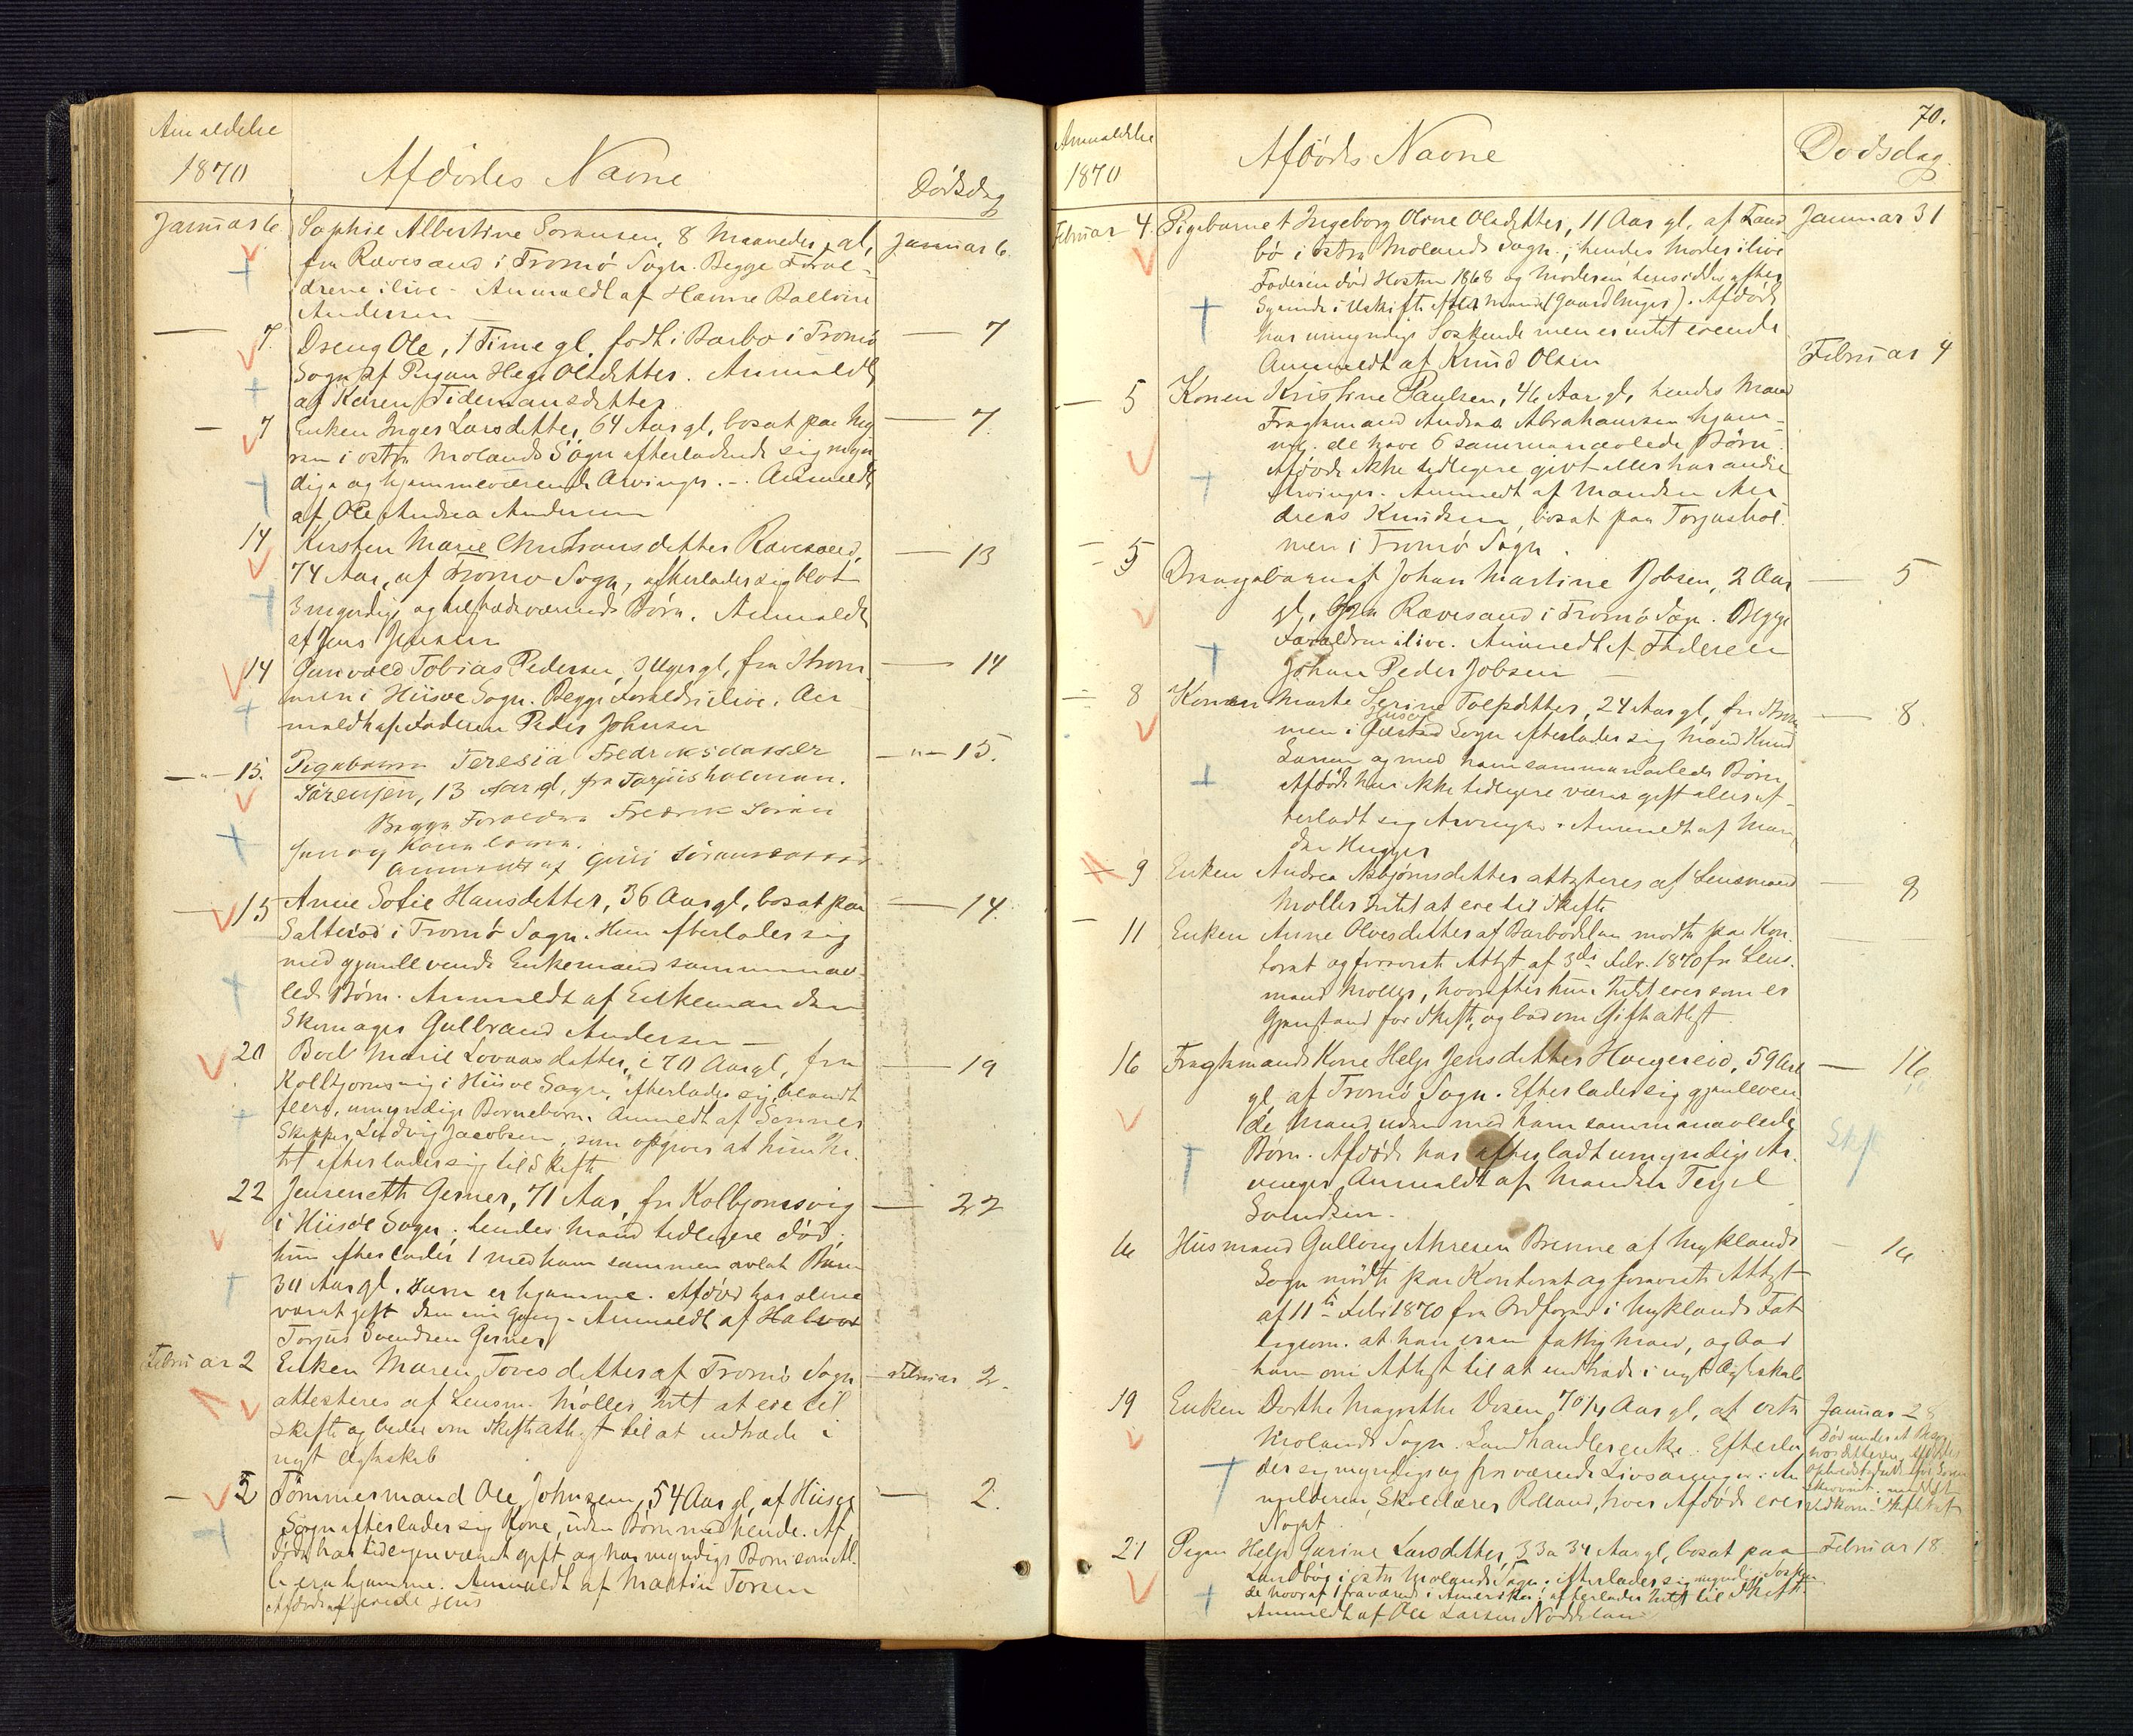 Anmeldelse
1870
Afdødes Navne
Dødsdag
Januar 6. Sophie Albertine Sørensen, 8 Maaneder gl., Januar 6.
fra Rævesand i Tromø Sogn. Begge Foræl-
drene ilive - Anmeldt af Hanne
Andersen
— 7. Dreng Ole, 1 Time gl. født i Barbo i Tromø — 7
Sogn af Pigen Hege Olsdatter. Anmeldt
af Karen Tidemansdatter
— 7 Enken Inger Larsdatter, 64 Aar gl, bosat paa — 7.
i østre Molands Sogn efterladende sig myn
dige og hjemmeværende Arvinger. -. Anmeldt
af Ole Andrea Andersen
14 Kirsten Marie Christensdatter Rævesand, — 13
74 Aar, af Tromø Sogn, efterlader sig blot
3 myndige og tilstedeværende Børn. Anmeldt
af Jens Jensen
14 Gunvald Tobias Pedersen, 3 Uger gl, fra Strøm — 14
men i Hisøe Sogn. Begge Forældre ilive. An
meldt af Faderen Peder Johnsen
— " — 15. Pigebarn Teresia Fredriksdatter — " — 15.
Sørensen, 13 Aar gl, fra Torjusholmen.
Begge Forældre Fredrik Sören
sen og Kone leve.
Anmeldt af Sørensdatter
— 15 Anne Sofie Hansdatter, 36 Aar gl, bosat paa — 14.
Salterød i Tromø Sogn. Hun efterlader sig
med gjenlevende Enkemand sammenav-
lede Børn. Anmeldt af Enkemanden
Skomager Gulbrand Andersen —
20 Boel Marie Lovaasdatter, i 70 Aar gl, fra — 19
Kolbjørnsvig i Hisøe Sogn, efterlader sig blandt
flere, umyndige Børnebørn. Anmeldt af Sønnen
Skipper Ludvig Jacobsen, som opgiver at hun In
tet efterlader sig til Skifte
22 Jensenette Gerner, 71 Aar, fra Kolbjørnsvig — 22
i Hisøe Sogn; hendes Mand tidligere død;
hun efterlader 1 med ham sammen avlet Barn
30 Aar gl. som er hjemme. Afdød har alene
været gift den ene Gang - Anmeldt af Halvor
Torjus Svendsen Gerner
Februar 2 Enken Maren Tovesdatter af Tromø Sogn — Februar 2.
attesteres af Lensm. Møller Intet at eie til
Skifte og beder om Skifteattest til at indtræde i
nyt Ægteskab
— 2 Tømmermand Ole Johnsen, 54 Aar gl, af Hisøe — 2.
Sogn efterlader sig Kone, uden Børn med hende. Af
døde har tidligere været gift og har myndige Børn som Al-
le ere hjemme. Anmeldt af Martin Torsen
Anmeldelse
1870
Afdødes Navne
70.
Dødsdag.
Februar 4. Pigebarnet Ingeborg Oline Olsdatter, 11 Aar gl, af Land Januar 31
bø i østre Molands Sogn; hendes Moder ilive
Faderen død Høsten 1868 og Moderen hensidder efter
Sigende i Uskifte efter Mand (Gaardbruger). Afdøde
har umyndige Søskende men er intet eiende
Anmeldt af Knud Olsen
— 5 Konen Kristine Paulsen, 46 Aar gl, hendes Mand Februar 4
Fragtemand Andreas Abrahamsen hjem-
me. de have 6 sammenavlede Børn.
Afdøde ikke tidligere givt eller har andre
Arvinger. Anmeldt af Manden An
dreas Knudsen, bosat paa Torjushol-
men i Tromø Sogn.
— 5 Drengebarnet Johan Martine Jobsen, 2 Aar — 5
gl, fra Rævesand i Tromø Sogn. Begge
Forældrene ilive. Anmeldt af Faderen
Johan Peder Jobsen —
— 8 Konen Marte Serine Tolfsdatter, 24 Aar gl, fra Strøm — 8.
men i Hisøe Sogn efterlader sig Mand Knud
Larsen og med ham sammenavlede Børn,
Afdøde har ikke tidligere været gift eller ef-
terladt sig Arvinger. Anmeldt af Man
den
— 9 Enken Andrea Asbjørnsdatter attesteres af Lensmand — 9
Møller Intet at eie til Skifte
— 11 Enken Anne Olvesdatter af Barbodalen mødte paa Kon- —
toret og foreviste Attest af 3die Febr. 1870 fra Lens-
mand Møller, hvorefter hun Intet eier som er
Gjenstand for Skifte, og bad om Giftattest
16 Fragtemands Kone Helje Jensdatter Haugereid, 59 Aar — 16
gl, af Tromø Sogn. Efterlader sig gjenleven
de Mand, uden med ham sammenavlede
Børn. Afdøde har efterladt umyndige Ar-
vinger. Anmeldt af Manden Terjel
Svendsen.
Skf
16 Husmand Gullong Ahresen Brenne af Myklands — 16
Sogn mødte paa Kontoret og foreviste Attest
af 11te Febr 1870 fra Ordfører i Myklands Fat
tigcom. at han er en fattig Mand, og bad
han om Attest til at indtræde i nyt Ægteskab
19 Enken Dorthe Magrethe Vosen 70 1/4 Aar gl, af østre Januar 28
Molands Sogn. Landhandlerenke. Efterla
der sig myndige og fraværende Livsarvinger. An
melderen, Skolelærer Rolland, hvor Afdøde eier
Noget
21 Pigen Helje Gurine Larsdatter, 33 a 34 Aar gl, bosat paa — Februar 18.
Landbø i østre Molands Sogn. efterlader sig myndige Søsken
de hvoraf 1 fraværende i Amerika; efterlader Intet til Skifte
Anmeldt af Ole Larsen Nøddeland